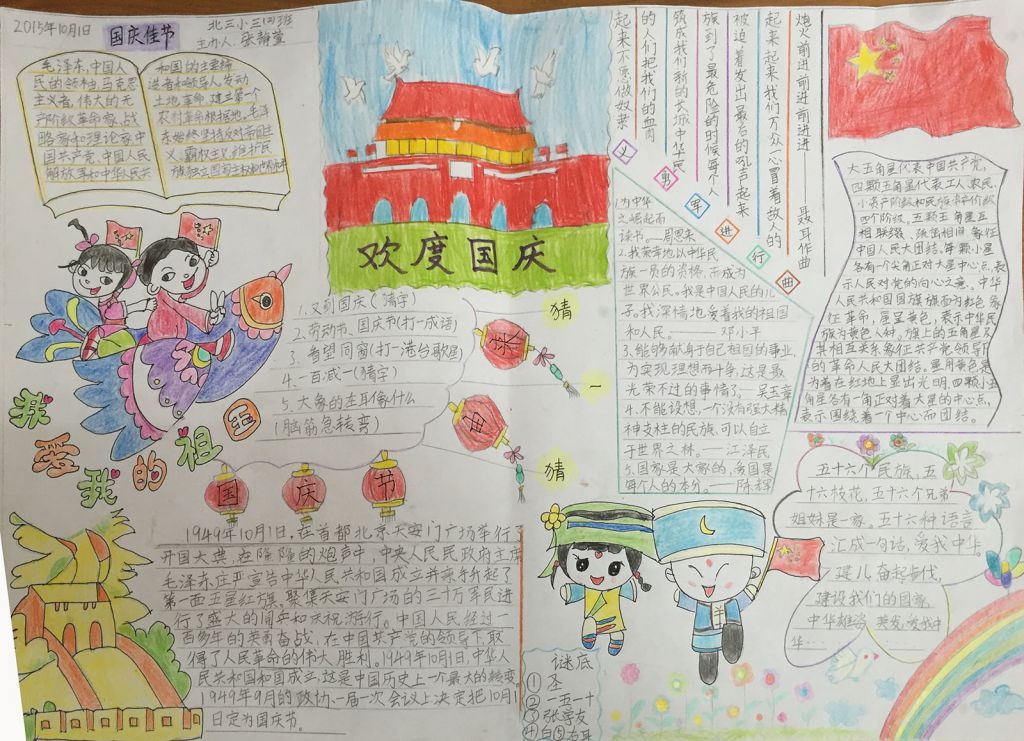 2015年10月1日
国庆佳节
北三小三(四)班
主办人:张静萱
毛泽东,中国人
民的领袖,马克思
主义者,伟大的无
产阶级革命家,战
略家和理论家,中
国共产党,中国人民
解放军和中华人民共
和国的主要缔
造者和领导人,发动
土地革命,建立第一个
农村革命根据地。毛泽
东始终坚持反对帝国主
义、霸权主义,维护民
族独立国家主权和世界和平
欢度国庆
起来不愿做奴隶
的人们把我们的血肉
筑成我们新的长城中华民
族到了最危险的时候每个人
被迫着发出最后的吼声起来
起来起来我们万众一心冒着敌人的
炮火前进前进前进进——聂耳作曲
义勇军进行曲
大五角星代表中国共产党,
四颗五角星代表工人、农民、
小资产阶级和民族资产阶级
四个阶级。五颗五角星互
相联缀、疏密相间,象征
中国人民大团结。每颗小星
各有一个尖角正对大星中心点,表
示人民对党的向心之意。中华
人民共和国国旗旗面为红色,象
征革命,星呈黄色,表示中华民
族为黄色人种。旗上的五角星及
其相互关系象征共产党领导下
的革命人民大团结。星用黄色是
为着在红地上显出光明,四颗小五
角星各有一角正对着大星的中心点,
表示围绕着一个中心而团结。
1.又到国庆(猜字)
2.劳动节、国庆节(打一成语)
3.希望同窗(打一港台歌星)
4.一百减一(猜字)
5.大象的左耳像什么
(脑筋急转弯)
猜
一
猜
1.为中华
之崛起而
读书。——周恩来
2.我荣幸地以中华民
族一员的资格,而成为
世界公民。我是中国人民的儿
子。我深情地爱着我的祖国
和人民。——邓小平
3.能够献身于自己祖国的事业,
为实现理想而斗争,这是最
光荣不过的事情了。——吴玉章
4.不能设想,一个没有强大精
神支柱的民族,可以自立
于世界之林。——江泽民
5.国家是大家的,爱国是
每个人的本分。——陈辉
我爱我的祖国
国庆节
1949年10月1日,在首都北京天安门广场举行了
开国大典,在隆隆的炮声中,中央人民民政府主席
毛泽东庄严宣告中华人民共和国成立并亲手升起了
第一面五星红旗。聚集天安门广场的三十万军民进
行了盛大的阅兵和庆祝游行。中国人民经过一
百多年的英勇奋战,在中国共产党的领导下,取
得了人民革命的伟大胜利。1949年10月1日,中华人
民共和国和国成立,这是中国历史上一个最大的转变。
1949年9月的政协一届一次会议上决定把10月1
日定为国庆节。
五十六个民族,五
十六枝花,五十六个兄弟
姐妹是一家。五十六种语言
汇成一句话,爱我中华
健儿奋起步伐,
建设我们的国家,
中华雄姿英发,爱我中
华……
羊
谜底
①圣
②一五一十
③张学友
④白⑤右耳